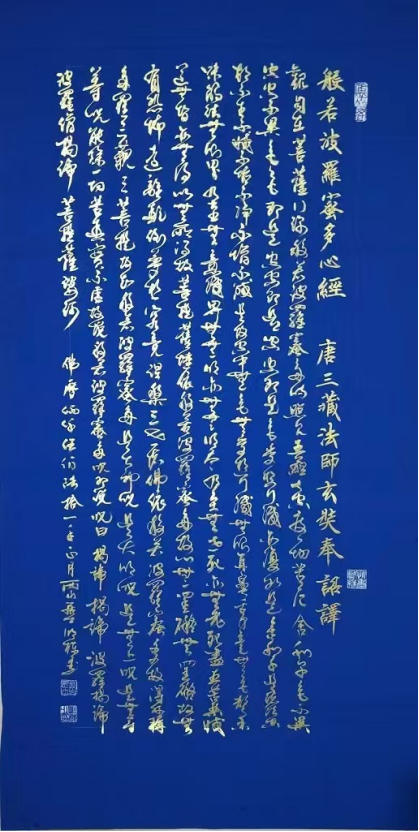 般若波羅蜜多心經 唐三藏法師玄奘奉詔譯
觀自在菩薩行深般若波羅蜜多時照見五蘊皆空度一切苦厄舍利子色不異
空空不異色色即是空空即是色受想行識亦復如是舍利子是諸法空
相不生不滅不垢不淨不增不減是故空中無色無受想行識無眼耳鼻舌身意無色聲香
味觸法無眼界乃至無意識界無無明亦無無明盡乃至無老死亦無老死盡無苦集滅
道無智亦無得以無所得故菩提薩埵依般若波羅蜜多故心無罣礙無罣礙故無
有恐怖遠離顛倒夢想究竟涅槃三世諸佛依般若波羅蜜多故得阿耨
多羅三藐三菩提故知般若波羅蜜多是大神咒是大明咒是無上咒是無等
等咒能除一切苦真實不虛故說般若波羅蜜多咒即說咒曰揭諦揭諦波羅揭諦
波羅僧揭諦菩提薩婆訶 佛曆